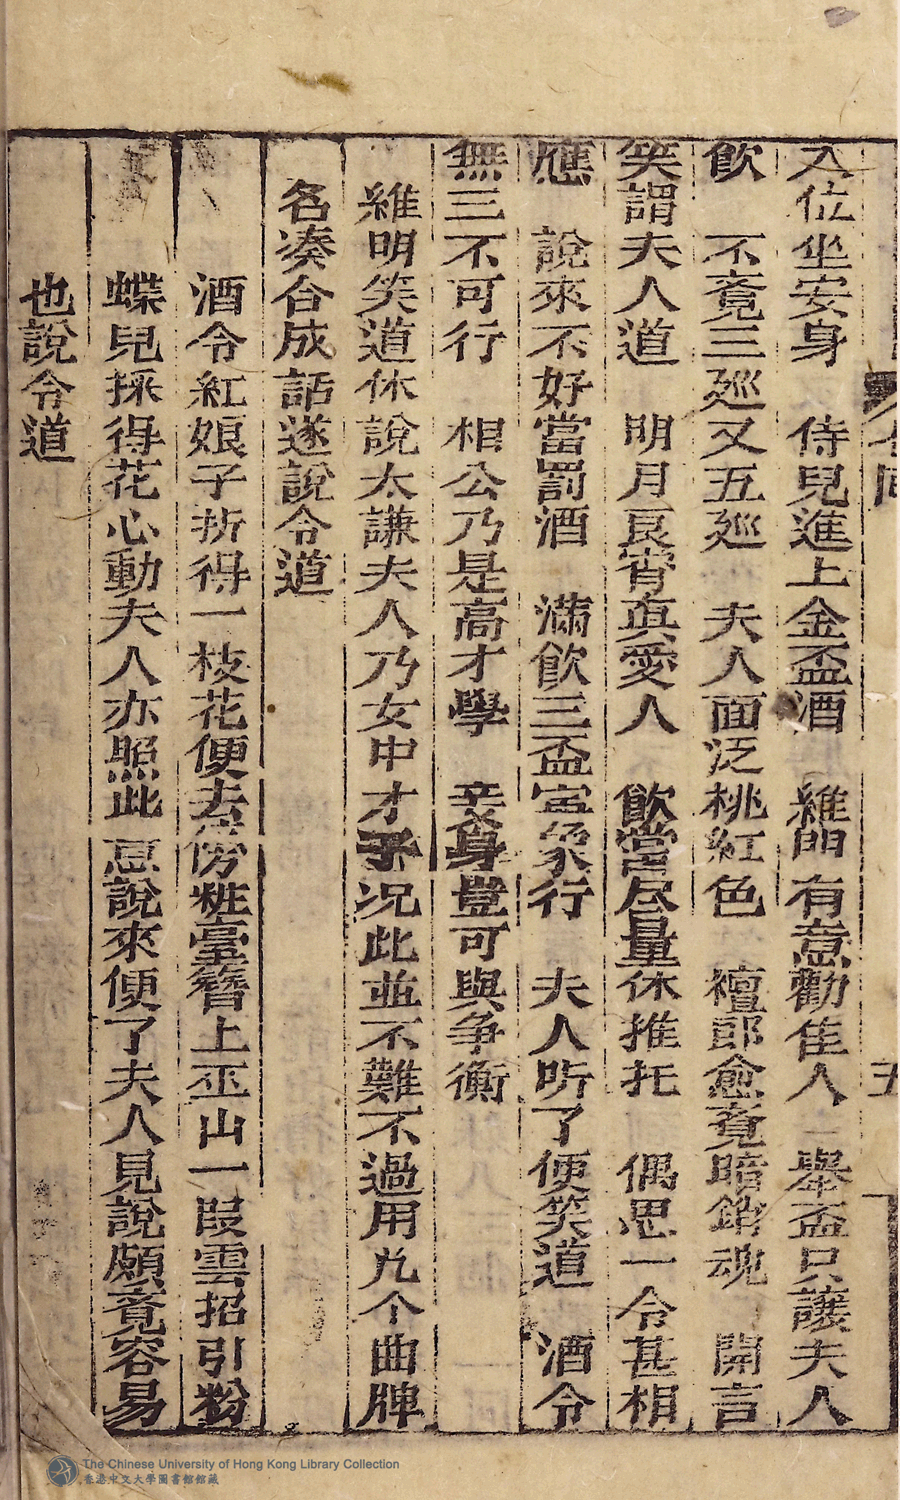 入位坐安身　侍兒進上金盃酒　維明有意勸佳人　舉盃只讓夫人
飲　不竟三廵又五廵　夫人面泛桃紅色　檀郎愈竟暗銷魂　開言
笑謂夫人道　明月良宵眞愛人　飲當尽量休推托　偶思一令甚相
應　說來不好當罰酒　滿飲三盃宜象行　夫人听了便笑道　酒令
無三不可行　相公乃是高才學　妾身豈可與爭衡
維明笑道休說太謙夫人乃女中才子况此並不難不過用九个曲牌
名凑合成話遂說令道
酒令紅娘子折得一枝花便去傍粧臺簪上巫山一段雲招引粉
蝶兒採得花心動夫人亦照此意說來便了夫人見說頗竟容易
也說令道
五
The Chinese University of Hong Kong Library Collection
香港中文大學圖書館館藏